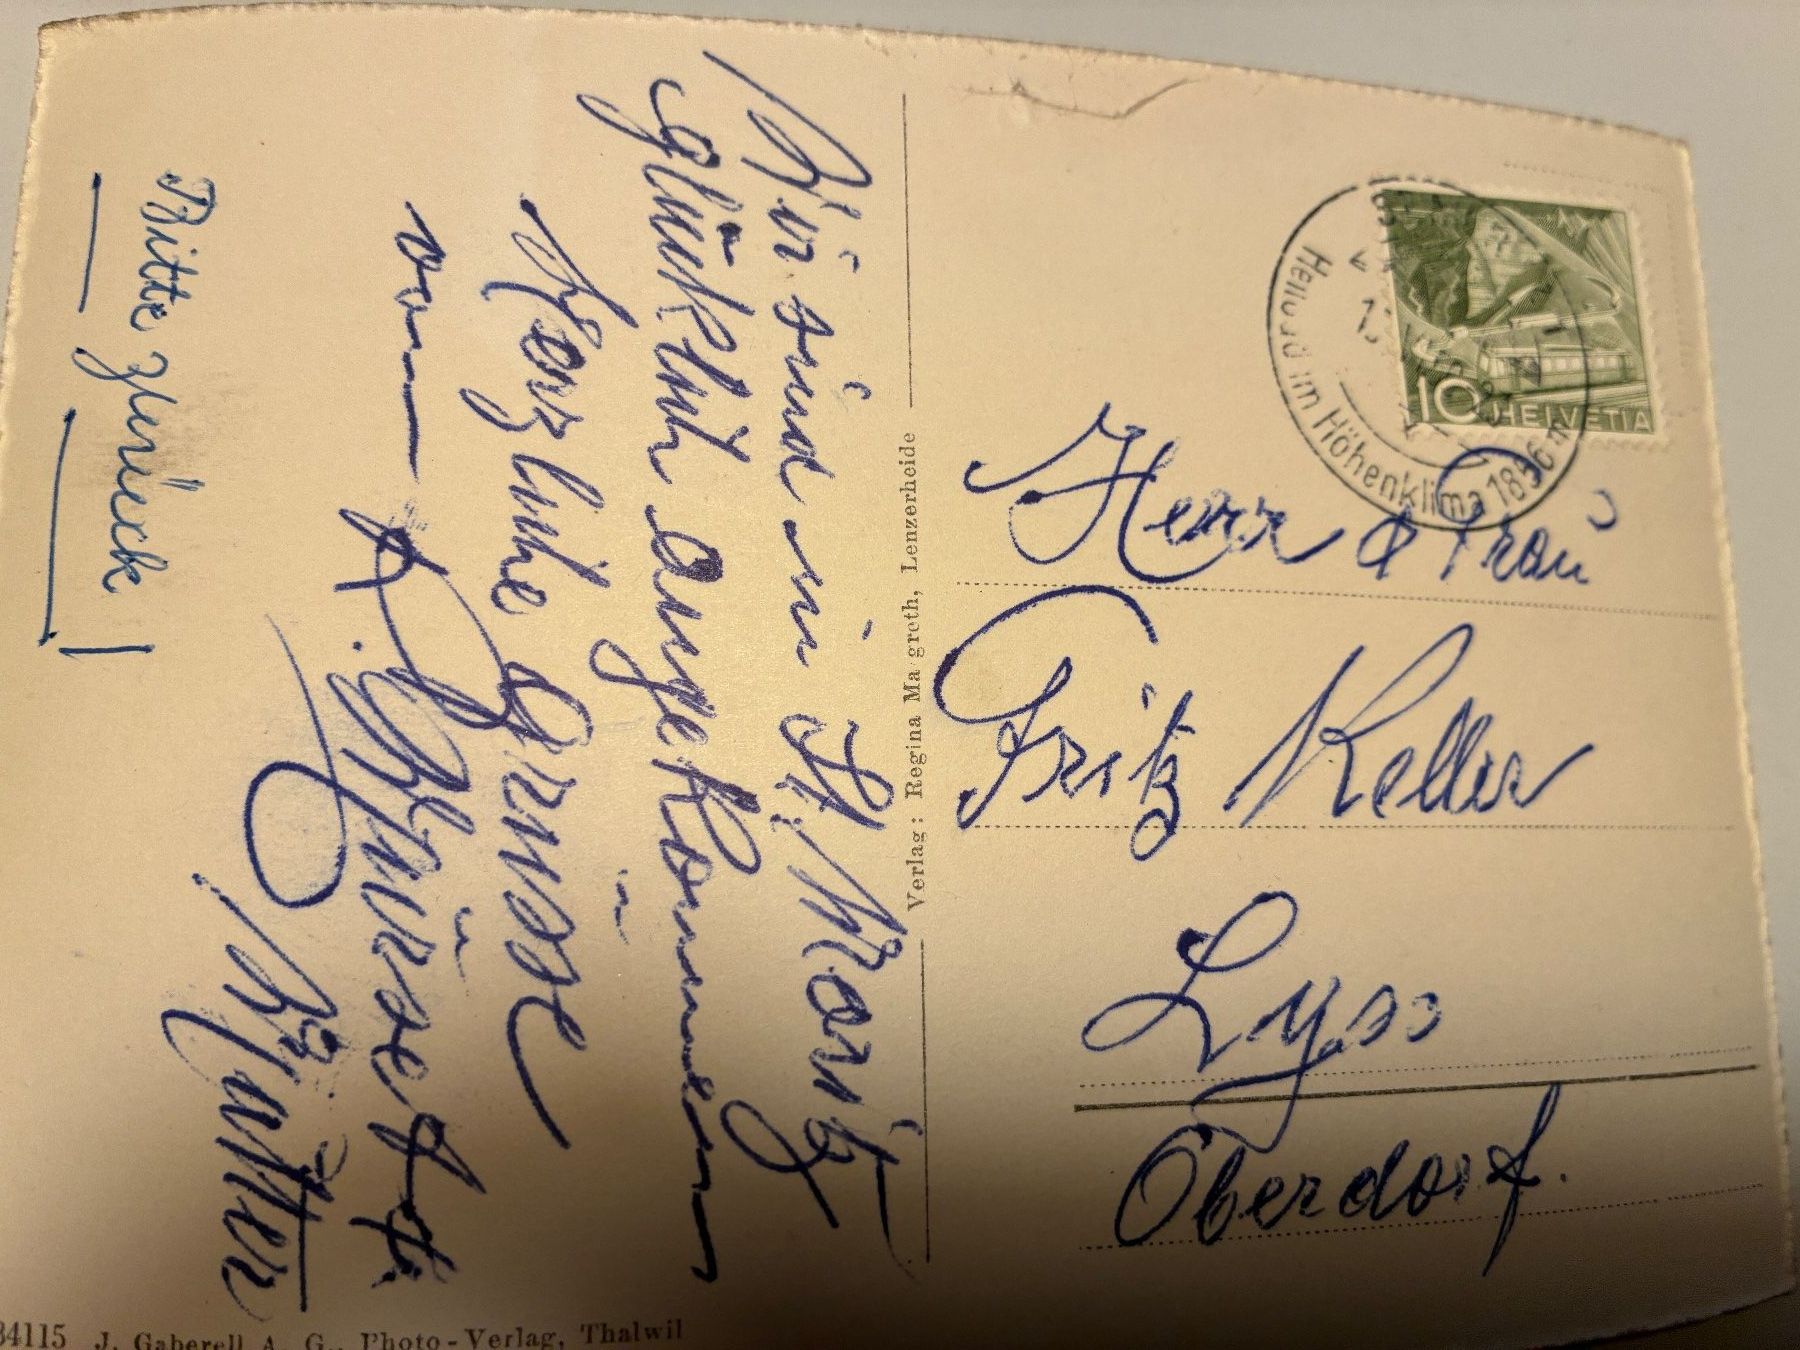 Wir sind in St. Moritz
glücklich angekommen
Herzliche Grüsse
von
Bitte zurück!
J. Gaberell A. G., Photo-Verlag, Thalwil
Verlag: Regina Ma greth, Lenzerheide
10 HELVETIA
Heilbad im Höhenklima 1856 m
Herr & Frau
Fritz Keller
Lyss
Oberdorf.